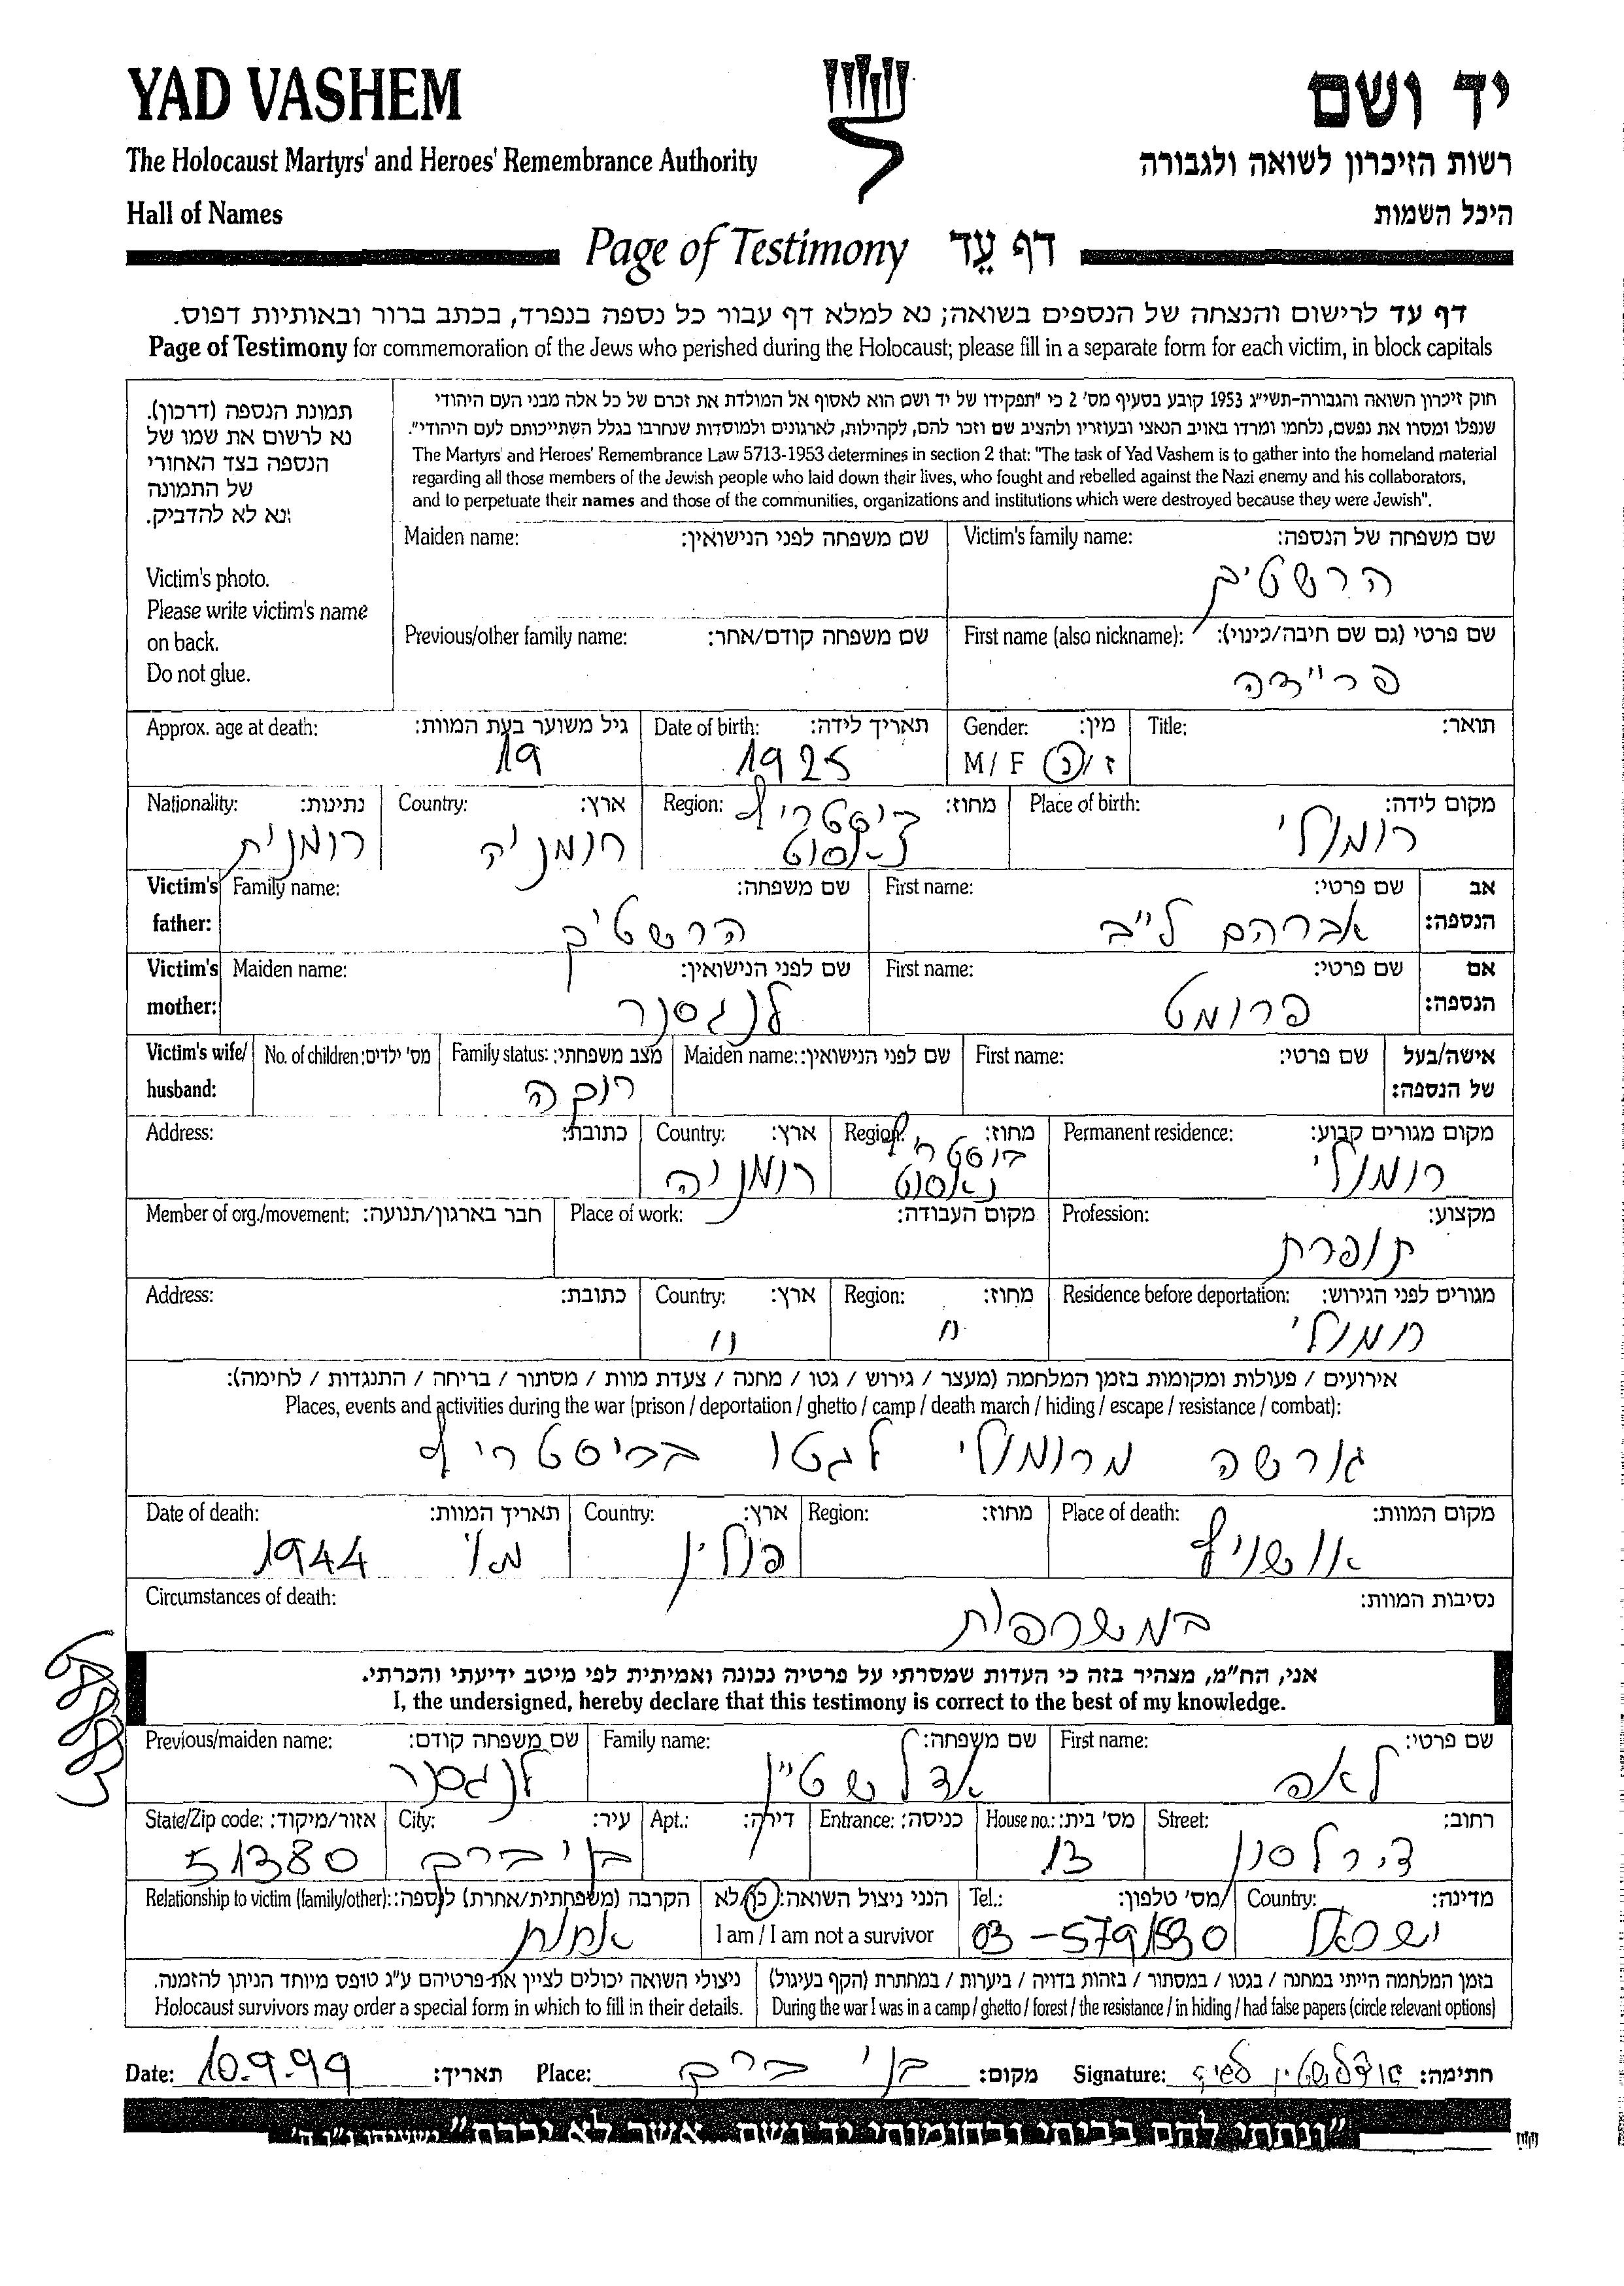 YAD VASHEM
יד ושם
The Holocaust Martyrs' and Heroes' Remembrance Authority
רשות הזיכרון לשואה ולגבורה
Hall of Names
היכל השמות
Page of Testimony דף עֵד
דף עד לרישום והנצחה של הנספים בשואה; נא למלא דף עבור כל נספה בנפרד, בכתב ברור ובאותיות דפוס.
Page of Testimony for commemoration of the Jews who perished during the Holocaust; please fill in a separate form for each victim, in block capitals
תמונת הנספה (דרכון).
נא לרשום את שמו של
הנספה בצד האחורי
של התמונה
נא לא להדביק.
Victim's photo.
Please write victim's name
on back.
Do not glue.
חוק זיכרון השואה והגבורה-תשי"ג 1953 קובע בסעיף מס' 2 כי "תפקידו של יד ושם הוא לאסוף אל המולדת את זכרם של כל אלה מבני העם היהודי
שנפלו ומסרו את נפשם, נלחמו ומרדו באויב הנאצי ובעוזריו ולהציב שם וזכר להם, לקהילות, לארגונים ולמוסדות שנחרבו בגלל השתייכותם לעם היהודי".
The Martyrs' and Heroes' Remembrance Law 5713-1953 determines in section 2 that: "The task of Yad Vashem is to gather into the homeland material
regarding all those members of the Jewish people who laid down their lives, who fought and rebelled against the Nazi enemy and his collaborators,
and to perpetuate their names and those of the communities, organizations and institutions which were destroyed because they were Jewish".
שם משפחה של הנספה: Victim's family name:
הרשטיק
שם משפחה לפני הנישואין: Maiden name:
שם פרטי (גם שם חיבה/כינוי): First name (also nickname):
פריידה
שם משפחה קודם/אחר: Previous/other family name:
תואר: Title:
מין: Gender:
ז/נ M/F
תאריך לידה: Date of birth:
1925
גיל משוער בעת המוות: Approx. age at death:
19
מקום לידה: Place of birth:
רומולי
מחוז: Region:
ביסטריץ
נאסוט
ארץ: Country:
רומניה
נתינות: Nationality:
רומנית
אב הנספה: Victim's father:
שם פרטי: First name:
אברהם לייב
שם משפחה: Family name:
הרשטיק
אם הנספה: Victim's mother:
שם פרטי: First name:
פרומט
שם לפני הנישואין: Maiden name:
לנגסנר
אישה/בעל של הנספה: Victim's wife/husband:
שם פרטי: First name:
שם לפני הנישואין: Maiden name:
מצב משפחתי: Family status:
רוקה
מס' ילדים: No. of children:
מקום מגורים קבוע: Permanent residence:
רומולי
מחוז: Region:
ביסטריץ
נאסוט
ארץ: Country:
רומניה
כתובת: Address:
מקצוע: Profession:
תופרת
מקום העבודה: Place of work:
חבר בארגון/תנועה: Member of org./movement:
מגורים לפני הגירוש: Residence before deportation:
רומולי
מחוז: Region:
"
ארץ: Country:
"
כתובת: Address:
אירועים / פעולות ומקומות בזמן המלחמה (מעצר / גירוש / גטו / מחנה / צעדת מוות / מסתור / בריחה / התנגדות / לחימה):
Places, events and activities during the war (prison / deportation / ghetto / camp / death march / hiding / escape / resistance / combat):
גורשה מרומולי לגטו בביסטריץ
מקום המוות: Place of death:
אושויץ
מחוז: Region:
ארץ: Country:
פולין
תאריך המוות: Date of death:
מאי 1944
נסיבות המוות: Circumstances of death:
במשרפות
אני, הח"מ, מצהיר בזה כי העדות שמסרתי על פרטיה נכונה ואמיתית לפי מיטב ידיעתי והכרתי.
I, the undersigned, hereby declare that this testimony is correct to the best of my knowledge.
שם פרטי: First name:
לאה
שם משפחה: Family name:
אדלשטיין
שם משפחה קודם: Previous/maiden name:
לנגסנר
רחוב: Street:
מס' בית: House no.:
13
כניסה: Entrance:
דירה: Apt.:
עיר: City:
בני ברק
אזור/מיקוד: State/Zip code:
51380
מדינה: Country:
ישראל
מס' טלפון: Tel.:
03-5791530
הנני ניצול השואה: כן/לא
I am / I am not a survivor
הקרבה (משפחתית/אחרת) לנספה: Relationship to victim (family/other):
אחות
בזמן המלחמה הייתי במחנה / בגטו / במסתור / בזהות בדויה / ביערות / במחתרת (הקף בעיגול)
During the war I was in a camp / ghetto / forest / the resistance / in hiding / had false papers (circle relevant options)
ניצולי השואה יכולים לציין את פרטיהם ע"ג טופס מיוחד הניתן להזמנה.
Holocaust survivors may order a special form in which to fill in their details.
חתימה: Signature: אדלשטיין
מקום: Place: בני ברק
תאריך: Date: 10.9.99
"ונתתי להם בביתי ובחומותי יד ושם...אשר לא יכרת"